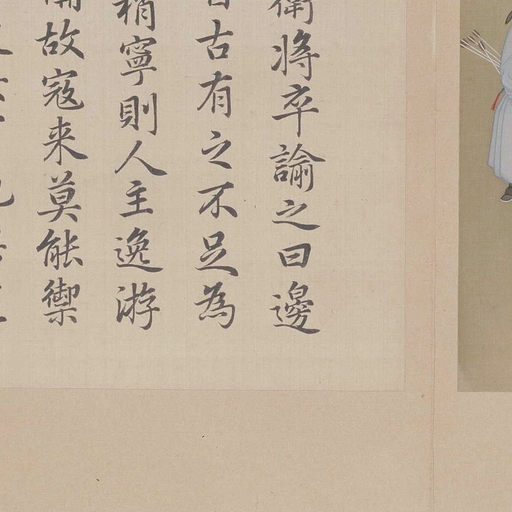 衛將卒諭之曰邊
古有之不足為
稍寧則人主逸游
故寇来莫能禦